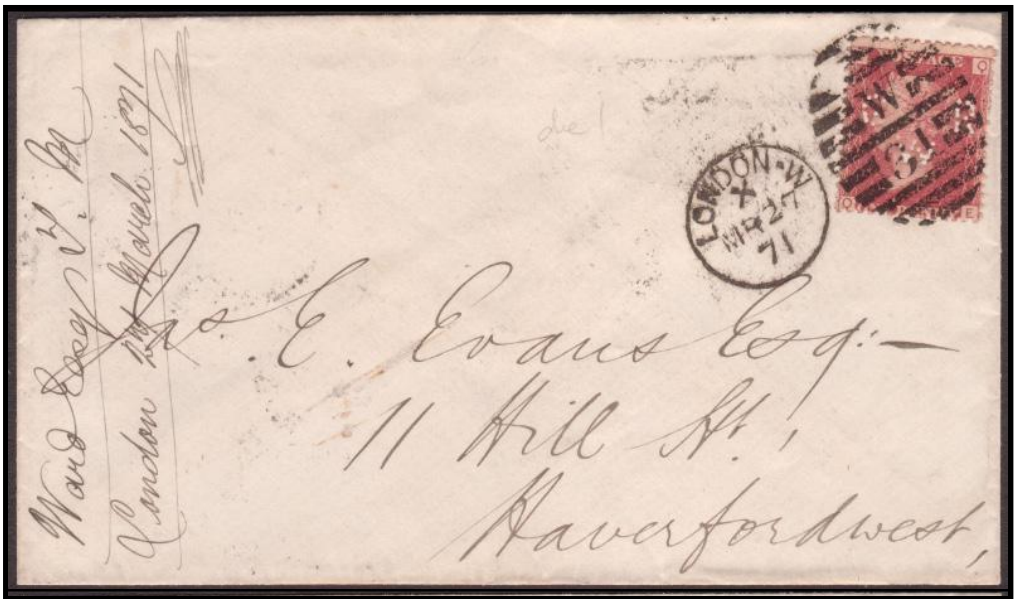 Ward Esqr T. M
London 27th March 1871
die 1
LONDON-W
X
MR 27
71
W
31
Q
Q E
Jas. E. Evans Esq:—
11 Hill St,
Haverfordwest,